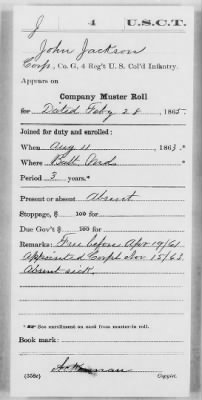 J 4 U.S.C.T.
John Jackson
Corp, Co. G, 4 Reg't U. S. Col'd Infantry.
Appears on
Company Muster Roll
for Dated Feby 28, 1865.
Joined for duty and enrolled:
When Aug 11, 1863.*
Where Balt
Period 3 years.*
Present or absent Absent
Stoppage, $ 100 for
Due Gov't $ 100 for
Remarks: Free before Apr 19/61
Appointed Corpl Nov 15/63.
Absent sick.
* See enrollment on card from muster-in roll.
Book mark:
(358c) Copyist.